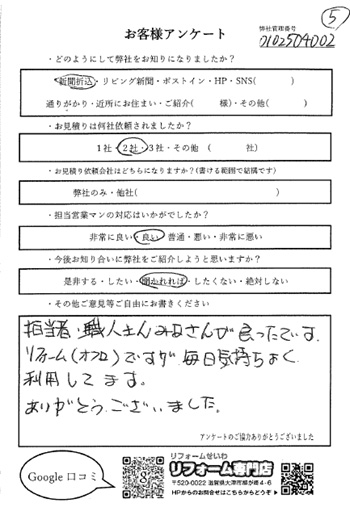 ⑤
お客様アンケート
弊社管理番号
0102504002
・どのようにして弊社をお知りになりましたか？
新聞折込・リビング新聞・ポストイン・HP・SNS(　　　)
通りがかり・近所にお住まい・ご紹介(　　　様)・その他(　　　)
・お見積りは何社依頼されましたか？
1社・2社・3社・その他　(　　　社)
・お見積り依頼会社はどちらになりますか？(書ける範囲で結構です)
弊社のみ・他社(　　　)
・担当営業マンの対応はいかがでしたか？
非常に良い・良い・普通・悪い・非常に悪い
・今後お知り合いに弊社をご紹介しようと思いますか？
是非する・したい・聞かれれば・したくない・絶対しない
・その他ご意見等ご自由にお書きください
担当者・職人さんみなさんが良ったです。
リフォーム(オフロ)ですが毎日気持ちよく
利用してます。
ありがとうございました。
アンケートのご協力ありがとうございました
Google 口コミ
リフォームせいわ
リフォーム専門店
〒520-0022 滋賀県大津市柳が崎4-6
HPからのお問合せはこちらからどうぞ